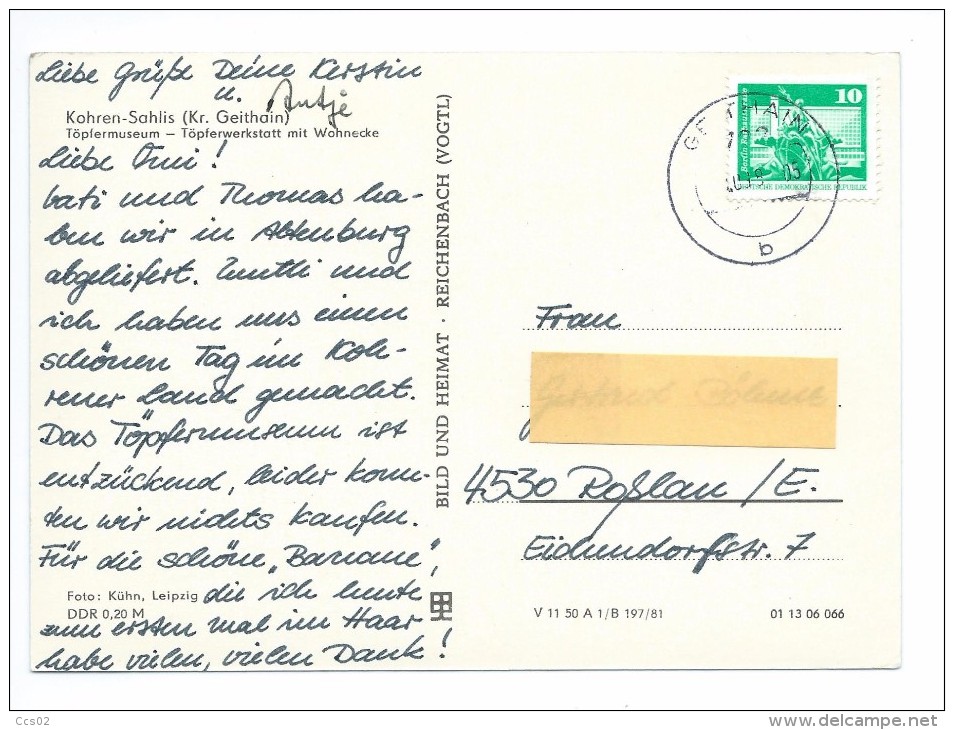 Liebe Grüße Deine Kerstin
u. Antje
Kohren-Sahlis (Kr. Geithain)
Töpfermuseum – Töpferwerkstatt mit Wohnecke
Liebe Omi!
Vati und Thomas ha-
ben wir in Altenburg
abgeliefert. Mutti und
ich haben uns einen
schönen Tag im Koh-
rener Land gemacht.
Das Töpfermuseum ist
entzückend, leider konn-
ten wir nichts kaufen.
Für die schöne „Banane“,
Foto: Kühn, Leipzig
DDR 0,20 M
die ich heute
zum ersten mal im Haar
habe vielen, vielen Dank!
BILD UND HEIMAT · REICHENBACH (VOGTL)
10
Berlin
DEUTSCHE DEMOKRATISCHE REPUBLIK
GEITHAIN
b
Frau
4530 Roßlau / E.
Eichendorffstr. 7
V 11 50 A 1/B 197/81
01 13 06 066
Ccs02
delcampe.net